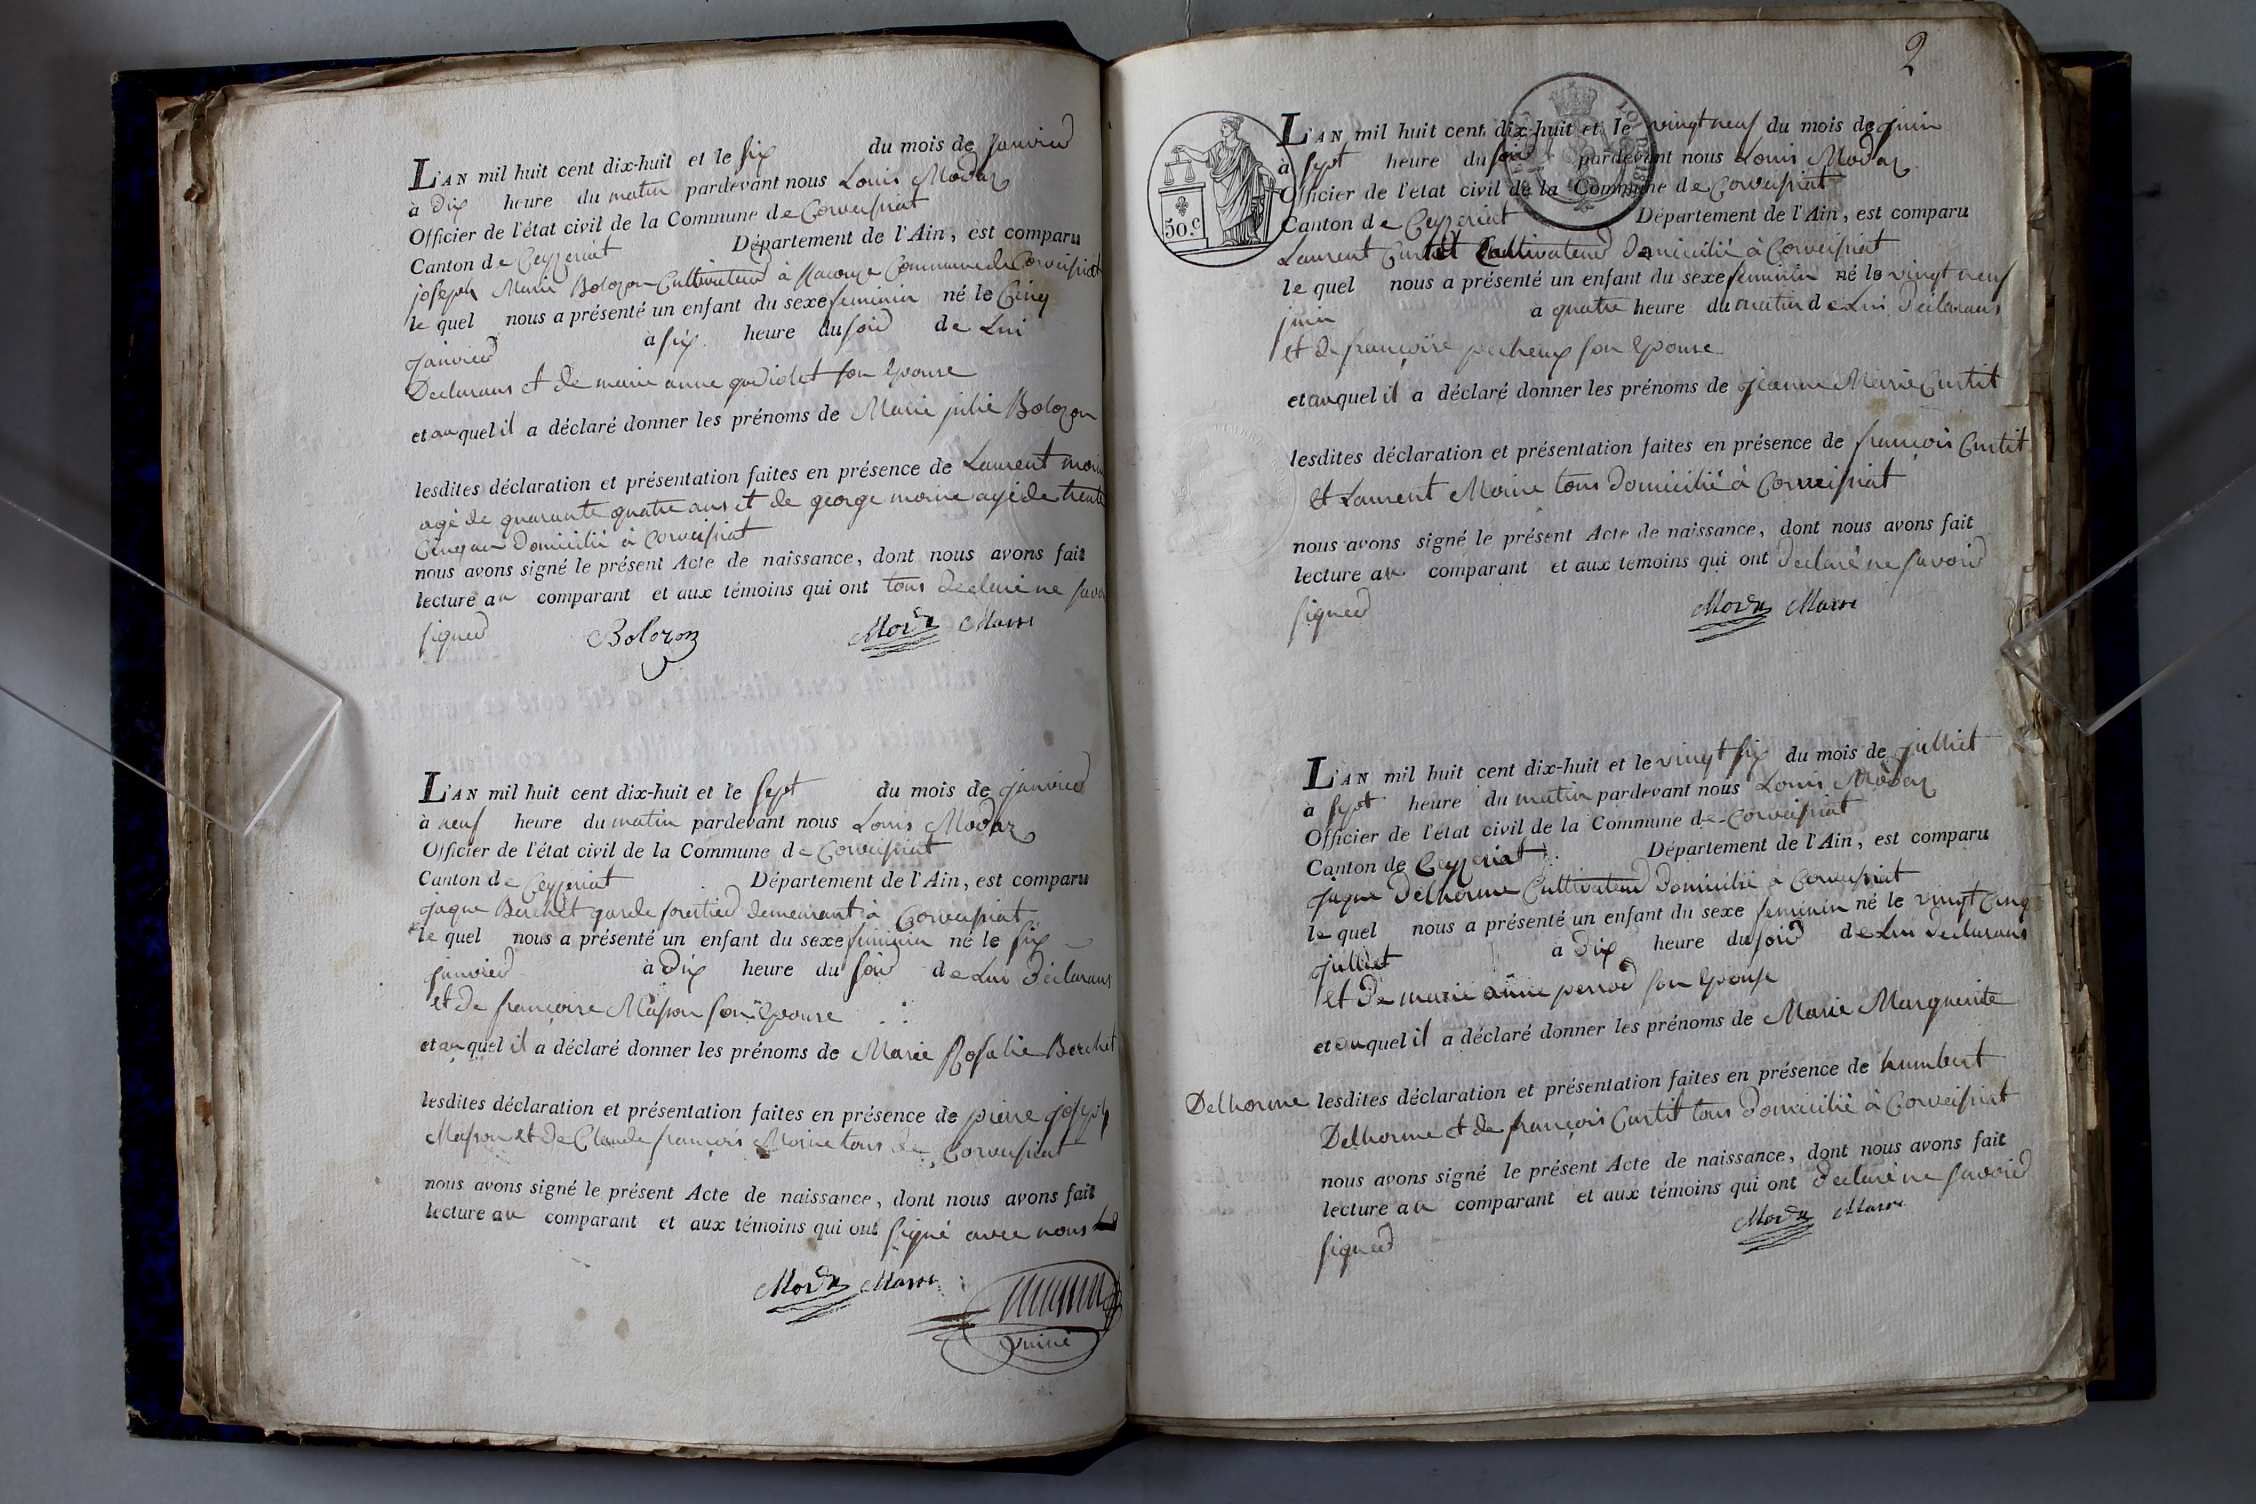 L'AN mil huit cent dix-huit et le six du mois de janvier
à dix heure du matin pardevant nous Louis Modas
Officier de l'état civil de la Commune de Corveissiat
Canton de Ceyzeriat Département de l'Ain, est comparu
joseph Marie Bolozon Cultivateur à Racouze Commune de Corveissiat
le quel nous a présenté un enfant du sexe feminin né le Cinq
janvier à six heure du soir de Lui
Declarans et de marie anne gudiolet son epouse
et au quel il a déclaré donner les prénoms de Marie julie Bolozon
lesdites déclaration et présentation faites en présence de Laurent moine
agé de quarante quatre ans et de george moine agé de trente
Cinq ans Domicilié à Corveissiat
nous avons signé le présent Acte de naissance, dont nous avons fait
lecture au comparant et aux témoins qui ont tous declaré ne savoir
signer Bolozon Modas Maire
L'AN mil huit cent dix-huit et le sept du mois de janvier
à neuf heure du matin pardevant nous Louis Modas
Officier de l'état civil de la Commune de Corveissiat
Canton de Ceyzeriat Département de l'Ain, est comparu
jaque Berchet garde forestier demeurant à Corveissiat
le quel nous a présenté un enfant du sexe feminin né le six
janvier à Dix heure du soir de Lui déclarans
et de françoise Masson son Epouse
et au quel il a déclaré donner les prénoms de Marie Rosalie Berchet
lesdites déclaration et présentation faites en présence de pierre joseph
Masson et de Claude françois Moine tous de Corveissiat
nous avons signé le présent Acte de naissance, dont nous avons fait
lecture au comparant et aux témoins qui ont signé avec nous
Modas Maire
2
50.c
L'AN mil huit cent dix-huit et le vingt neuf du mois de juin
à sept heure du soir pardevant nous Louis Modas
Officier de l'état civil de la Commune de Corveissiat
Canton de Ceyzeriat Département de l'Ain, est comparu
Laurent Curtet Cultivateur Domicilié à Corveissiat
le quel nous a présenté un enfant du sexe feminin né le vingt neuf
juin à quatre heure du matin de Lui Déclarans
et de françoise pecheux son Epouse
et au quel il a déclaré donner les prénoms de jeanne Marie Curtit
lesdites déclaration et présentation faites en présence de françois Curtit
et Laurent Moine tous Domicilié à Corveissiat
nous avons signé le présent Acte de naissance, dont nous avons fait
lecture au comparant et aux témoins qui ont declaré ne savoir
signer Modas Maire
L'AN mil huit cent dix-huit et le vingt six du mois de julliet
à sept heure du matin pardevant nous Louis Modas
Officier de l'état civil de la Commune de Corveissiat
Canton de Ceyzeriat Département de l'Ain, est comparu
jaque Delhorme Cultivateur Domicilié à Corveissiat
le quel nous a présenté un enfant du sexe feminin né le vingt Cinq
julliet à Dix heure du soir de Lui declarans
et De marie anne perrod son Epouse
et au quel il a déclaré donner les prénoms de Marie Marguerite
Delhorme lesdites déclaration et présentation faites en présence de humbert
Delhorme et de françois Curtit tous Domicilié à Corveissiat
nous avons signé le présent Acte de naissance, dont nous avons fait
lecture au comparant et aux témoins qui ont declaré ne savoir
signer Modas Maire